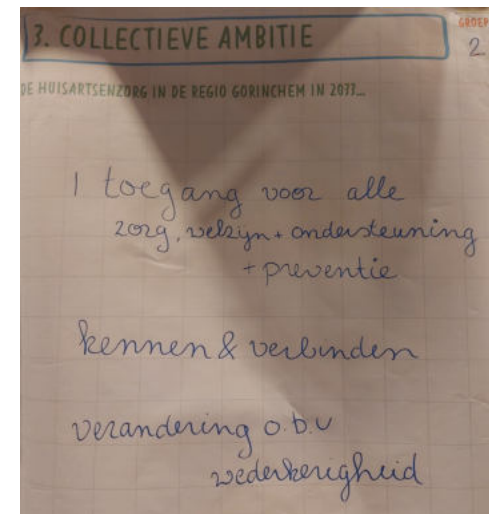 3. COLLECTIEVE AMBITIE
GROEP
2
DE HUISARTSENZORG IN DE REGIO GORINCHEM IN 2033...
1 toegang voor alle
zorg, welzijn + ondersteuning
+ preventie
kennen & verbinden
verandering o.b.v
wederkerigheid